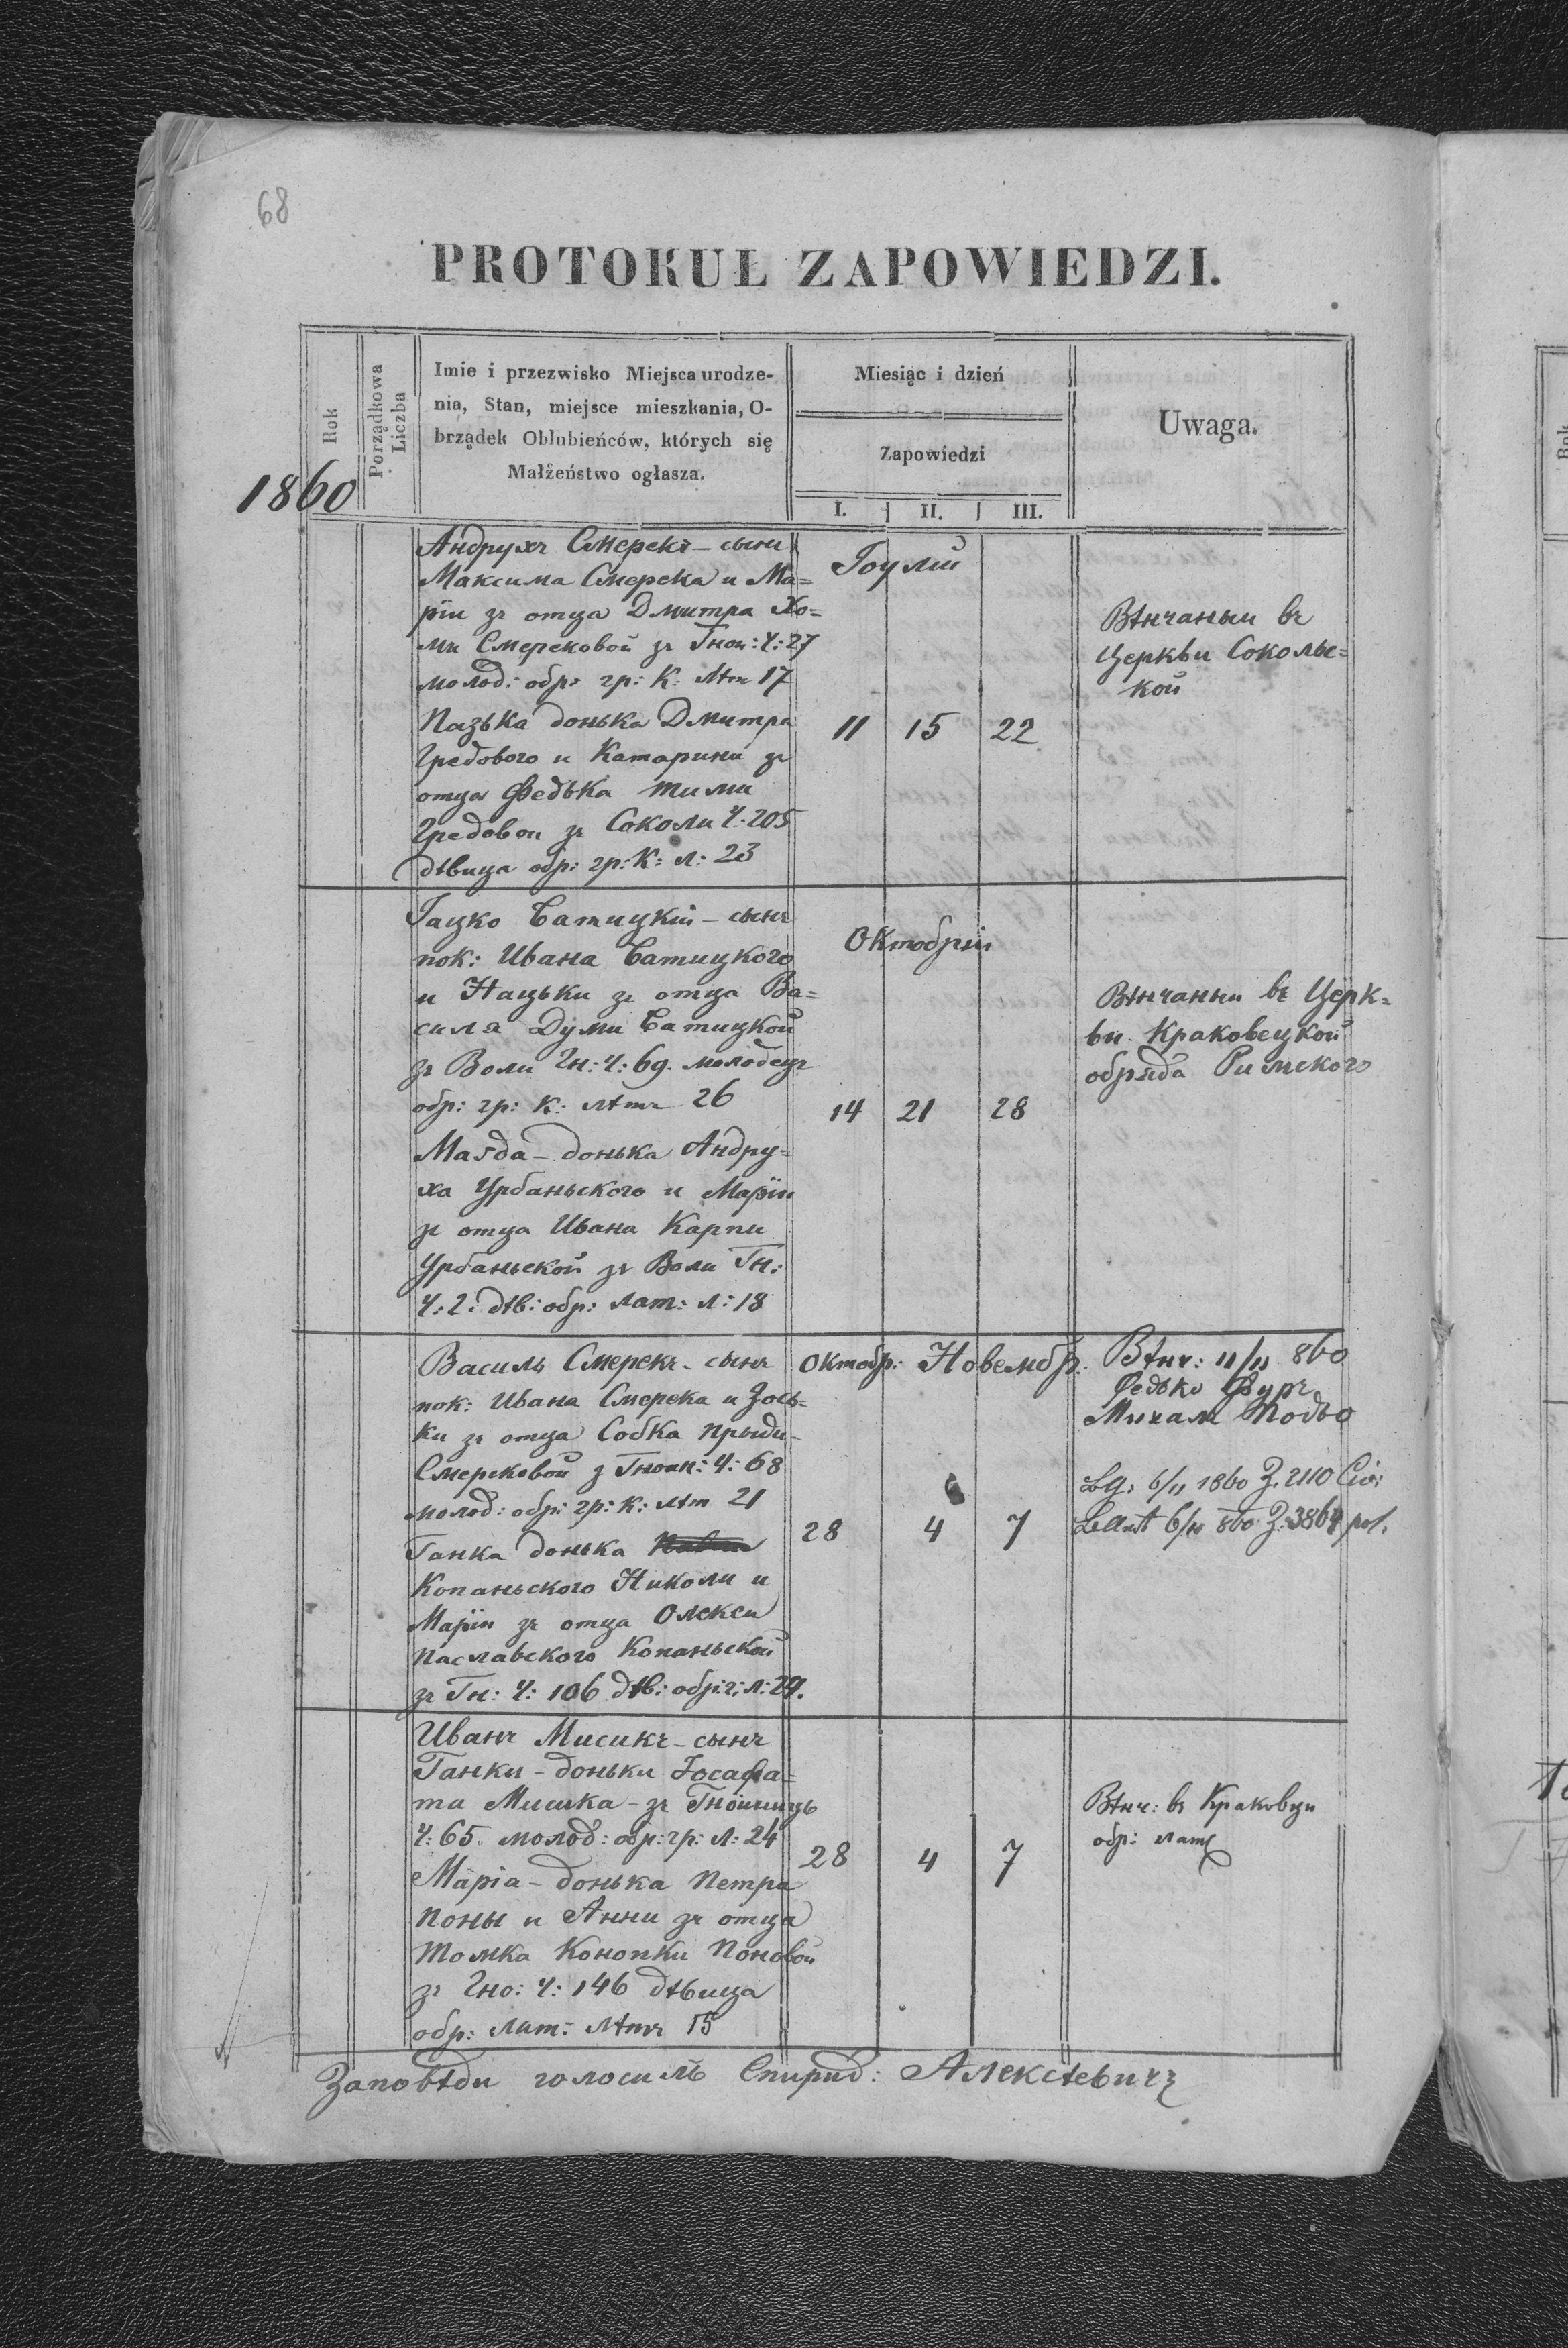 68
PROTOKUŁ ZAPOWIEDZI.
Rok
Porządkowa
Liczba
Imie i przezwisko Miejsca urodze-
nia, Stan, miejsce mieszkania, O-
brządek Oblubieńców, których się
Małżeństwo ogłasza.
Miesiąc i dzień
Zapowiedzi
I. II. III.
Uwaga.
1860
Андрухъ Смерекъ - сынъ
Максима Смерека и Ма=
ріи зъ отца Дмитра Хо=
ми Смерековой зъ Гнои: Ч: 27
молод: обр: гр: К: лѣтъ 17
Пазька донька Дмитра
Гредового и Катарини зъ
отца Федька Тими
Гредовои зъ Соколи Ч: 205
дѣвица обр: гр: К: л: 23
Іоулій
11 15 22
Вѣнчаныи въ
Церкви Соколье=
кой
Гацко Батицкій - сынъ
пок: Ивана Батицкого
и Нацьки зъ отца Ва=
силя Думи Батицкой
зъ Воли Гн: Ч: 69. молодецъ
обр: гр: К: лѣтъ 26
Маґда - донька Андру=
ха Урбаньского и Маріи
зъ отца Ивана Карпи
Урбаньской зъ Воли Гн:
Ч: 2: дѣв: обр: лат: л: 18
Октобрій
14 21 28
Вѣнчаныи въ Церк=
ви Краковецкой
обряда Римского
Василь Смерекъ - сынъ
пок: Ивана Смерека и Зось=
ки зъ отца Собка Прыди-
Смерековой з Гноин: Ч: 68
молод: обр: гр: К: лѣт 21
Ганка донька
Копаньского Николи и
Маріи зъ отца Олекси
Паславского Копаньской
зъ Гн: Ч: 106 дѣв: обр: г: л: 24.
Октобр: Новембр:
28 4 7
Вѣнч: 11/11 860
Федько Фуръ
Михалъ
6/11 1860 Z. 2110
6/11 860 Z. 3864 pol.
Иванъ Мисикъ - сынъ
Ганки - доньки Іосафа=
та Мисика - зъ Гноиницъ
Ч: 65. молод: обр: гр: л: 24
Маріа - донька Петра
Поны и Анни зъ отца
Томка Конопки Поновой
зъ Гно: Ч: 146 дѣвица
обр: лат: лѣтъ 15
28 4 7
Вѣнч: въ Краковци
обр: лат
Заповѣди голосилъ Спирид: Алексѣевичъ